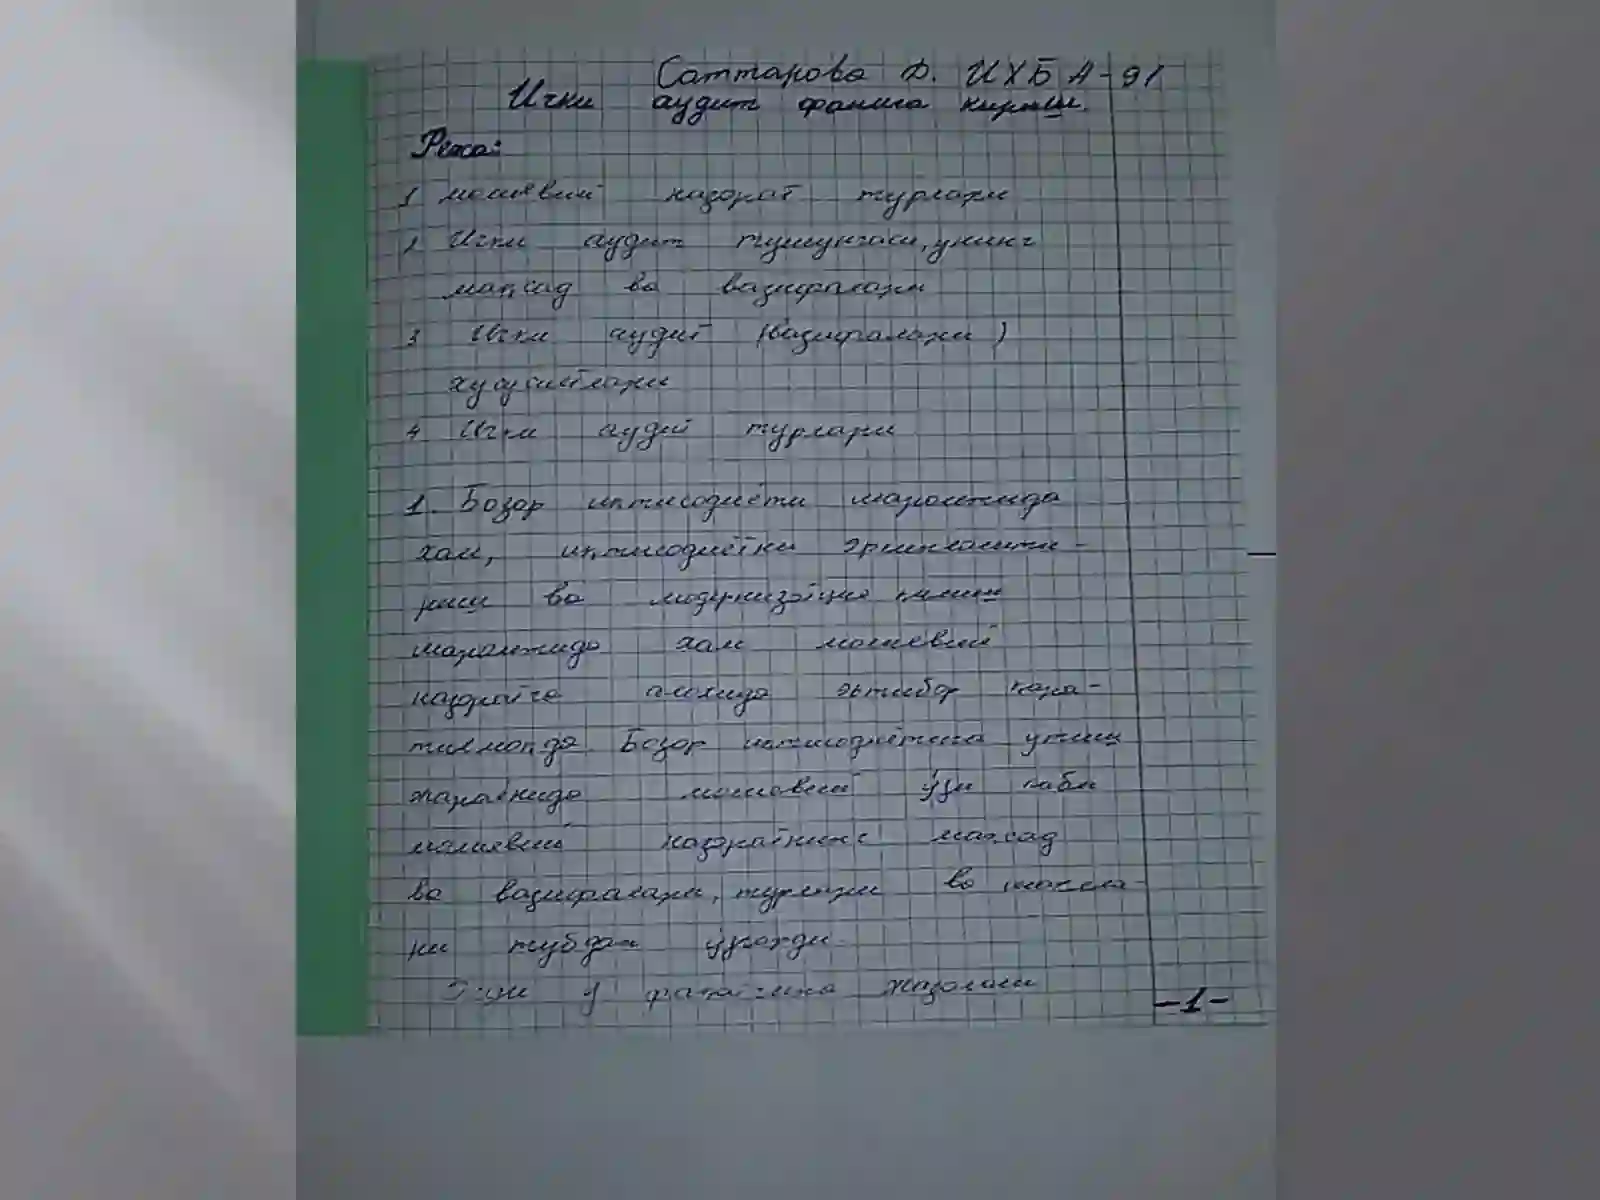 Саттарова Д. ИХБ А-91
Ички аудит фанига кириш.
Режа:
1 молиявий назорат турлари
2 Ички аудит тушунчаси, унинг
мақсад ва вазифалари
3 Ички аудит (вазифалари)
хусусиятлари
4 Ички аудит турлари
1. Бозор иқтисодиёти шароитида
хам, иқтисодиётни эркинлашти-
риш ва модернизация қилиш
шароитида хам молиявий
назоратга алохида эътибор қара-
тилмоқда. Бозор иқтисодиётига ўтиш
жараёнида молиявий ўзи каби
молиявий назоратнинг мақсад
ва вазифалари, турлари ва шаклла-
ри тубдан ўзгарди.
у фақатгина жазолаш
-1-